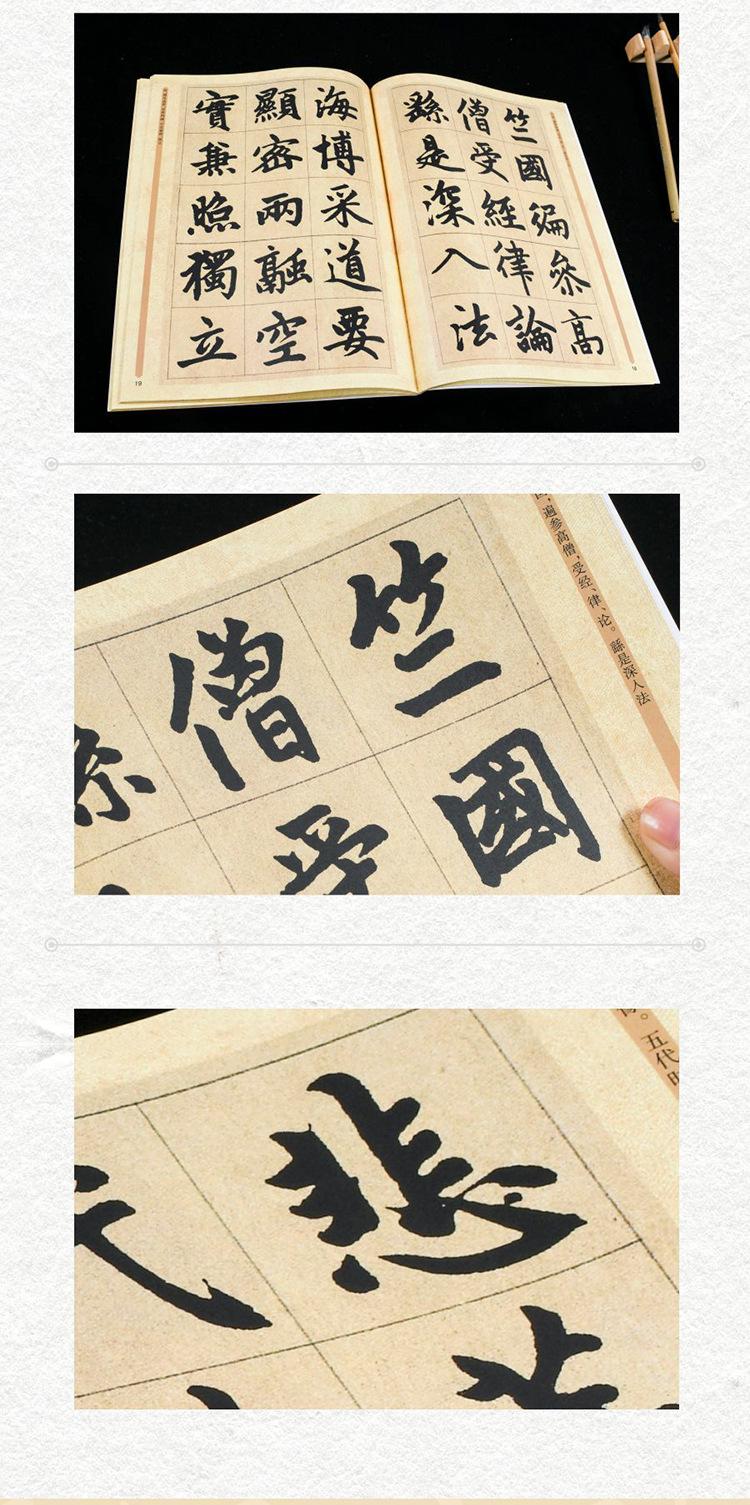 竺國徧參高
僧受經律論
繇是深入法
18
海博采道要
顯密兩融空
實兼照獨立
19
遍参高僧，受经、律、论。繇是深入法
竺國
僧受
。五代
悲